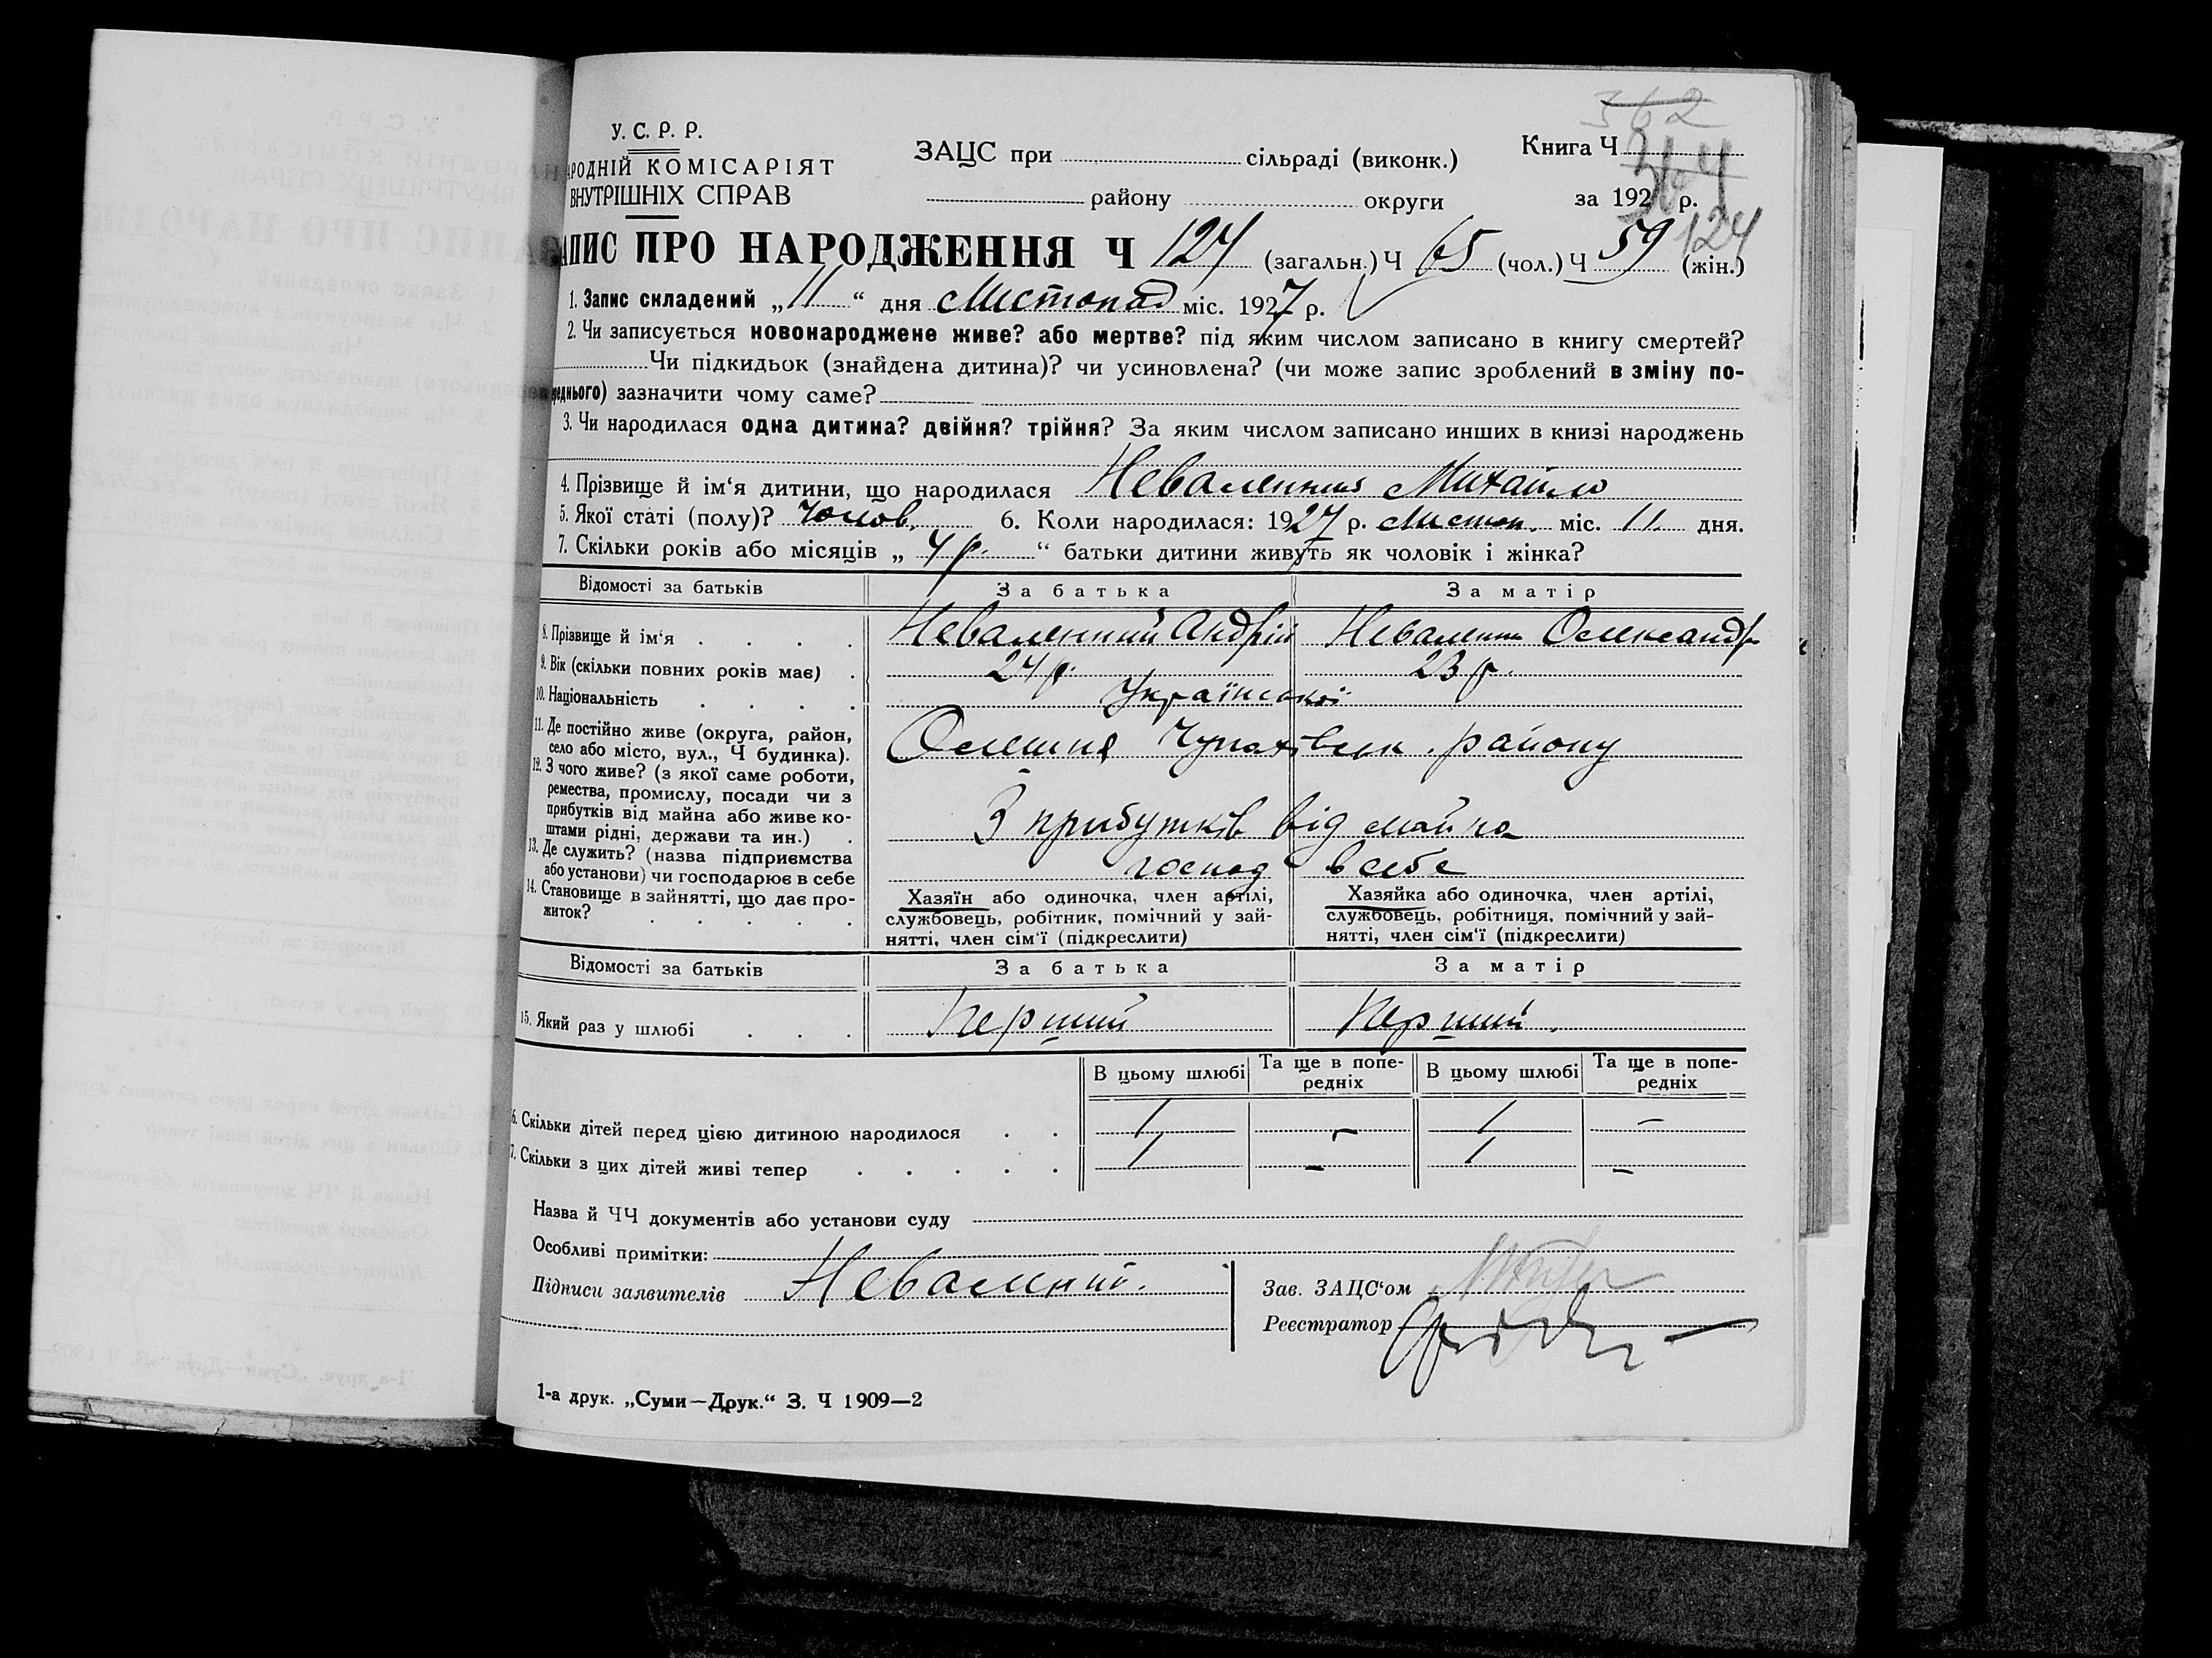 362
У. С. Р. Р.
АРОДНІЙ КОМІСАРІЯТ
ВНУТРІШНІХ СПРАВ
ЗАЦС при сільраді (виконк.)
району округи
Книга Ч
за 192 р.
124
АПИС ПРО НАРОДЖЕННЯ Ч 124 (загальн.) Ч 65 (чол.) Ч 59 (жін.)
1. Запис складений „ 11 “ дня Листопад міс. 1927 р.
2. Чи записується новонароджене живе? або мертве? під яким числом записано в книгу смертей?
Чи підкидьок (знайдена дитина)? чи усиновлена? (чи може запис зроблений в зміну по-
реднього) зазначити чому саме?
3. Чи народилася одна дитина? двійня? трійня? За яким числом записано инших в книзі народжень
4. Прізвище й ім‘я дитини, що народилася Михайло
5. Якої статі (полу)? Чолов. 6. Коли народилася: 1927 р. Листоп. міс. 11. дня.
7. Скільки років або місяців „ 4 р. “ батьки дитини живуть як чоловік і жінка?
Відомості за батьків За батька За матір
8. Прізвище й ім‘я Андрій Олександр
9. Вік (скільки повних років має) 24 р. 23 р.
10. Національність Української
11. Де постійно живе (округа, район,
село або місто, вул., Ч будинка). Олешня Чупахівськ. району
12. З чого живе? (з якої саме роботи,
ремества, промислу, посади чи з
прибутків від майна або живе ко-
штами рідні, держави та ин.) З прибутків від майна
13. Де служить? (назва підприємства
або установи) чи господарює в себе господ в себе
14. Становище в зайнятті, що дає про-
житок?
Хазяїн або одиночка, член артілі,
службовець, робітник, помічний у зай-
нятті, член сім‘ї (підкреслити)
Хазяйка або одиночка, член артілі,
службовець, робітниця, помічний у зай-
нятті, член сім‘ї (підкреслити)
Відомості за батьків За батька За матір
15. Який раз у шлюбі Перший Перший.
В цьому шлюбі Та ще в попе-
редніх В цьому шлюбі Та ще в попе-
редніх
6. Скільки дітей перед цією дитиною народилося 1 – 1 –
7. Скільки з цих дітей живі тепер 1 – 1 –
Назва й ЧЧ документів або установи суду
Особливі примітки:
Підписи заявителів
Зав. ЗАЦС‘ом
Реєстратор
1-а друк. „Суми—Друк.“ З. Ч 1909—2